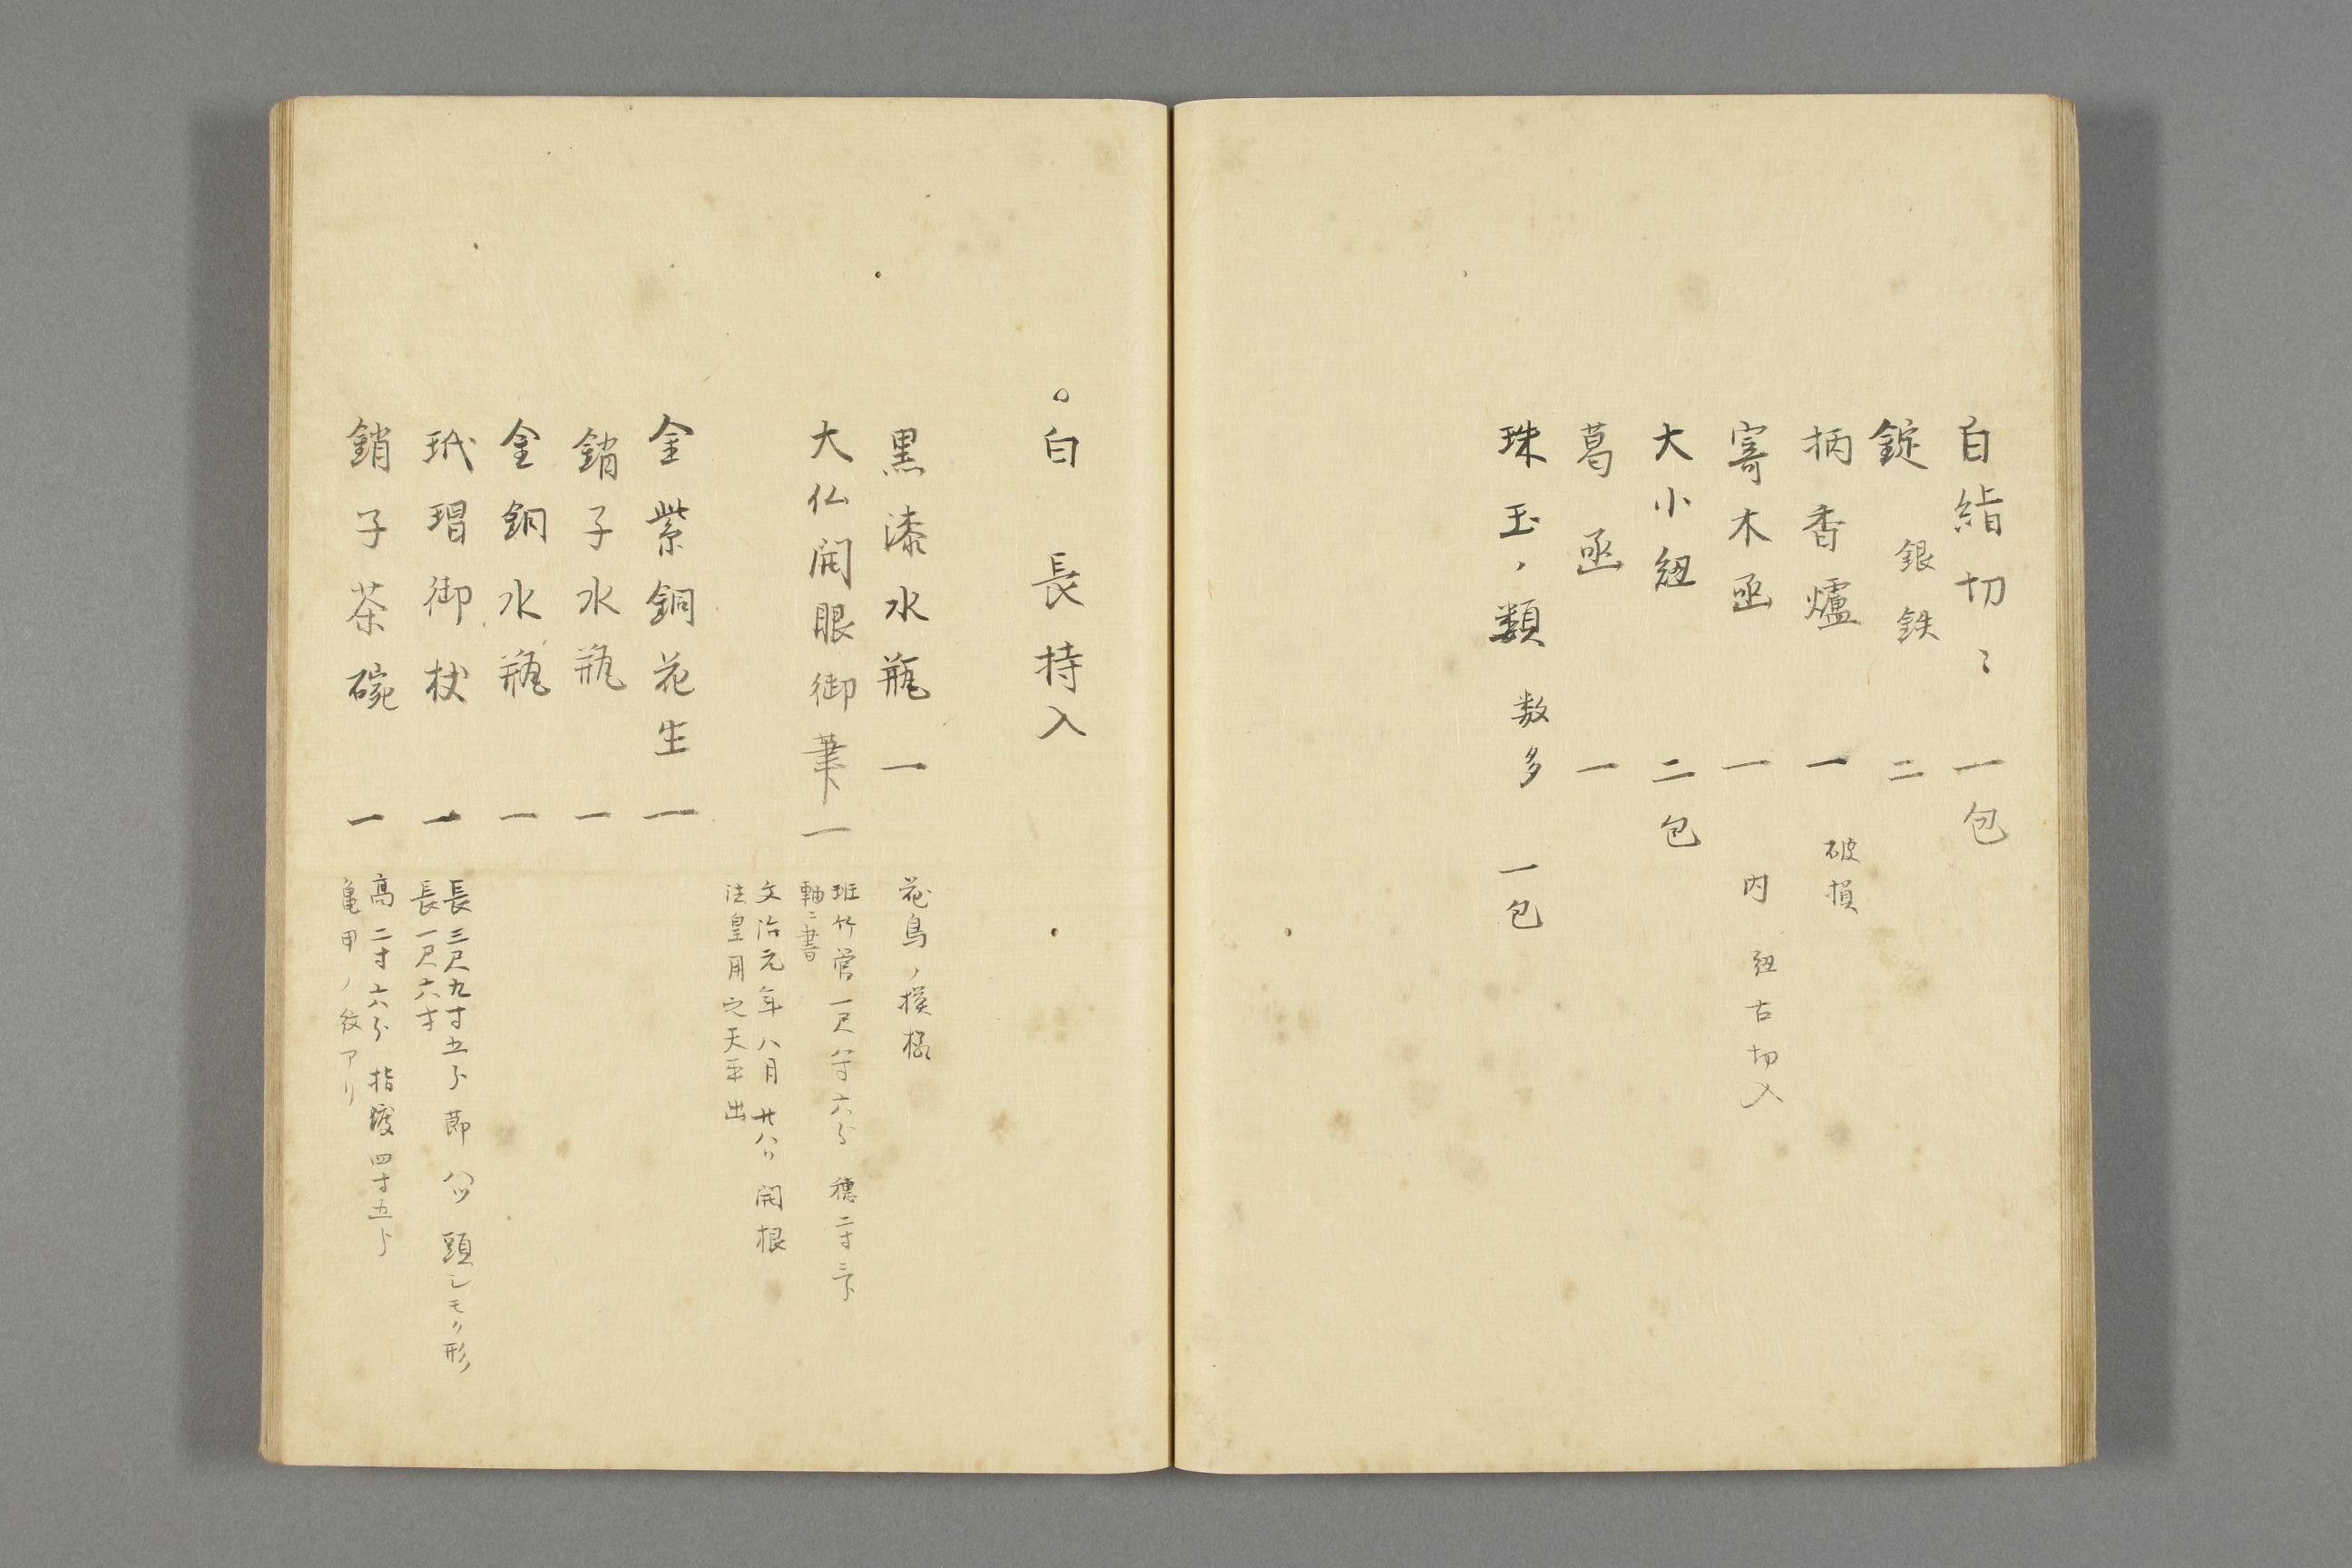 白絹切〻 一包
錠 銀 鉄 二
柄香爐 一 破損
寄木函 一 内 紐古切入
大小紐 二包
葛函 一
珠玉ノ類 数多 一包
。白 長持入
黒漆水瓶 一 花鳥ノ摸様
大仏開眼御筆 一 班竹管一尺八寸六分 穂二寸三分
軸ニ書
文治元年八月廿八日 開根
法皇用之天平出
金紫銅花生 一
銷子水瓶 一
金銅水瓶 一
玳瑁御杖 一 長三尺九寸五分 節八ツ 頭シモク形
長一尺六寸
銷子茶碗 一 高二寸六分 指渡四寸五分
亀甲ノ紋アリ